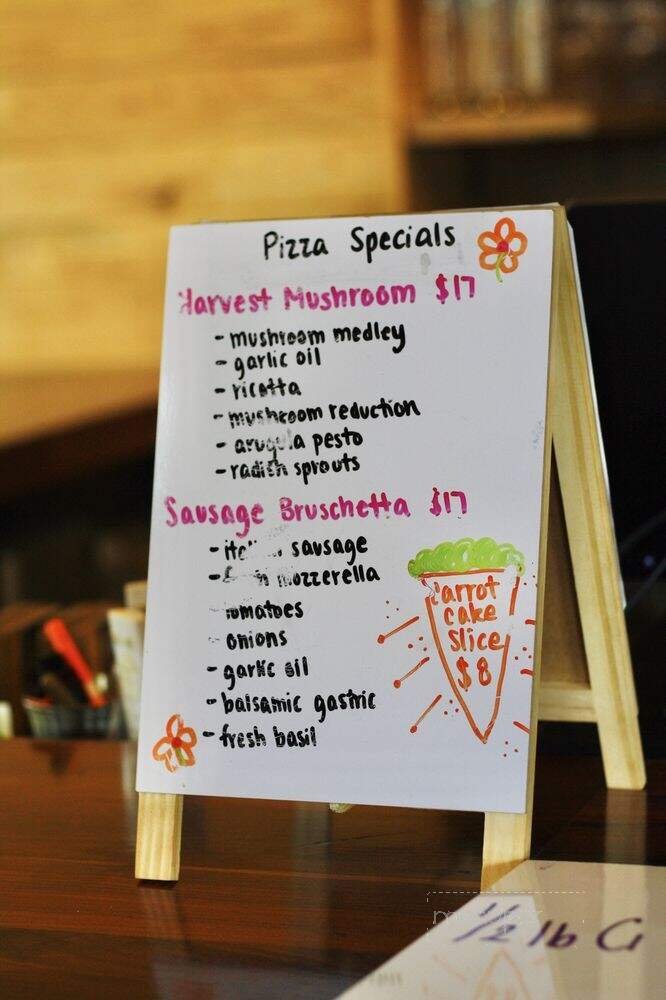 Pizza Specials
Harvest Mushroom $17
- mushroom medley
- garlic oil
- ricotta
- mushroom reduction
- arugula pesto
- radish sprouts
Sausage Bruschetta $17
- italian sausage
- mozzerella
tomatoes
onions
- garlic oil
- balsamic gastric
- fresh basil
Carrot
cake
slice
$8
1/2 lb